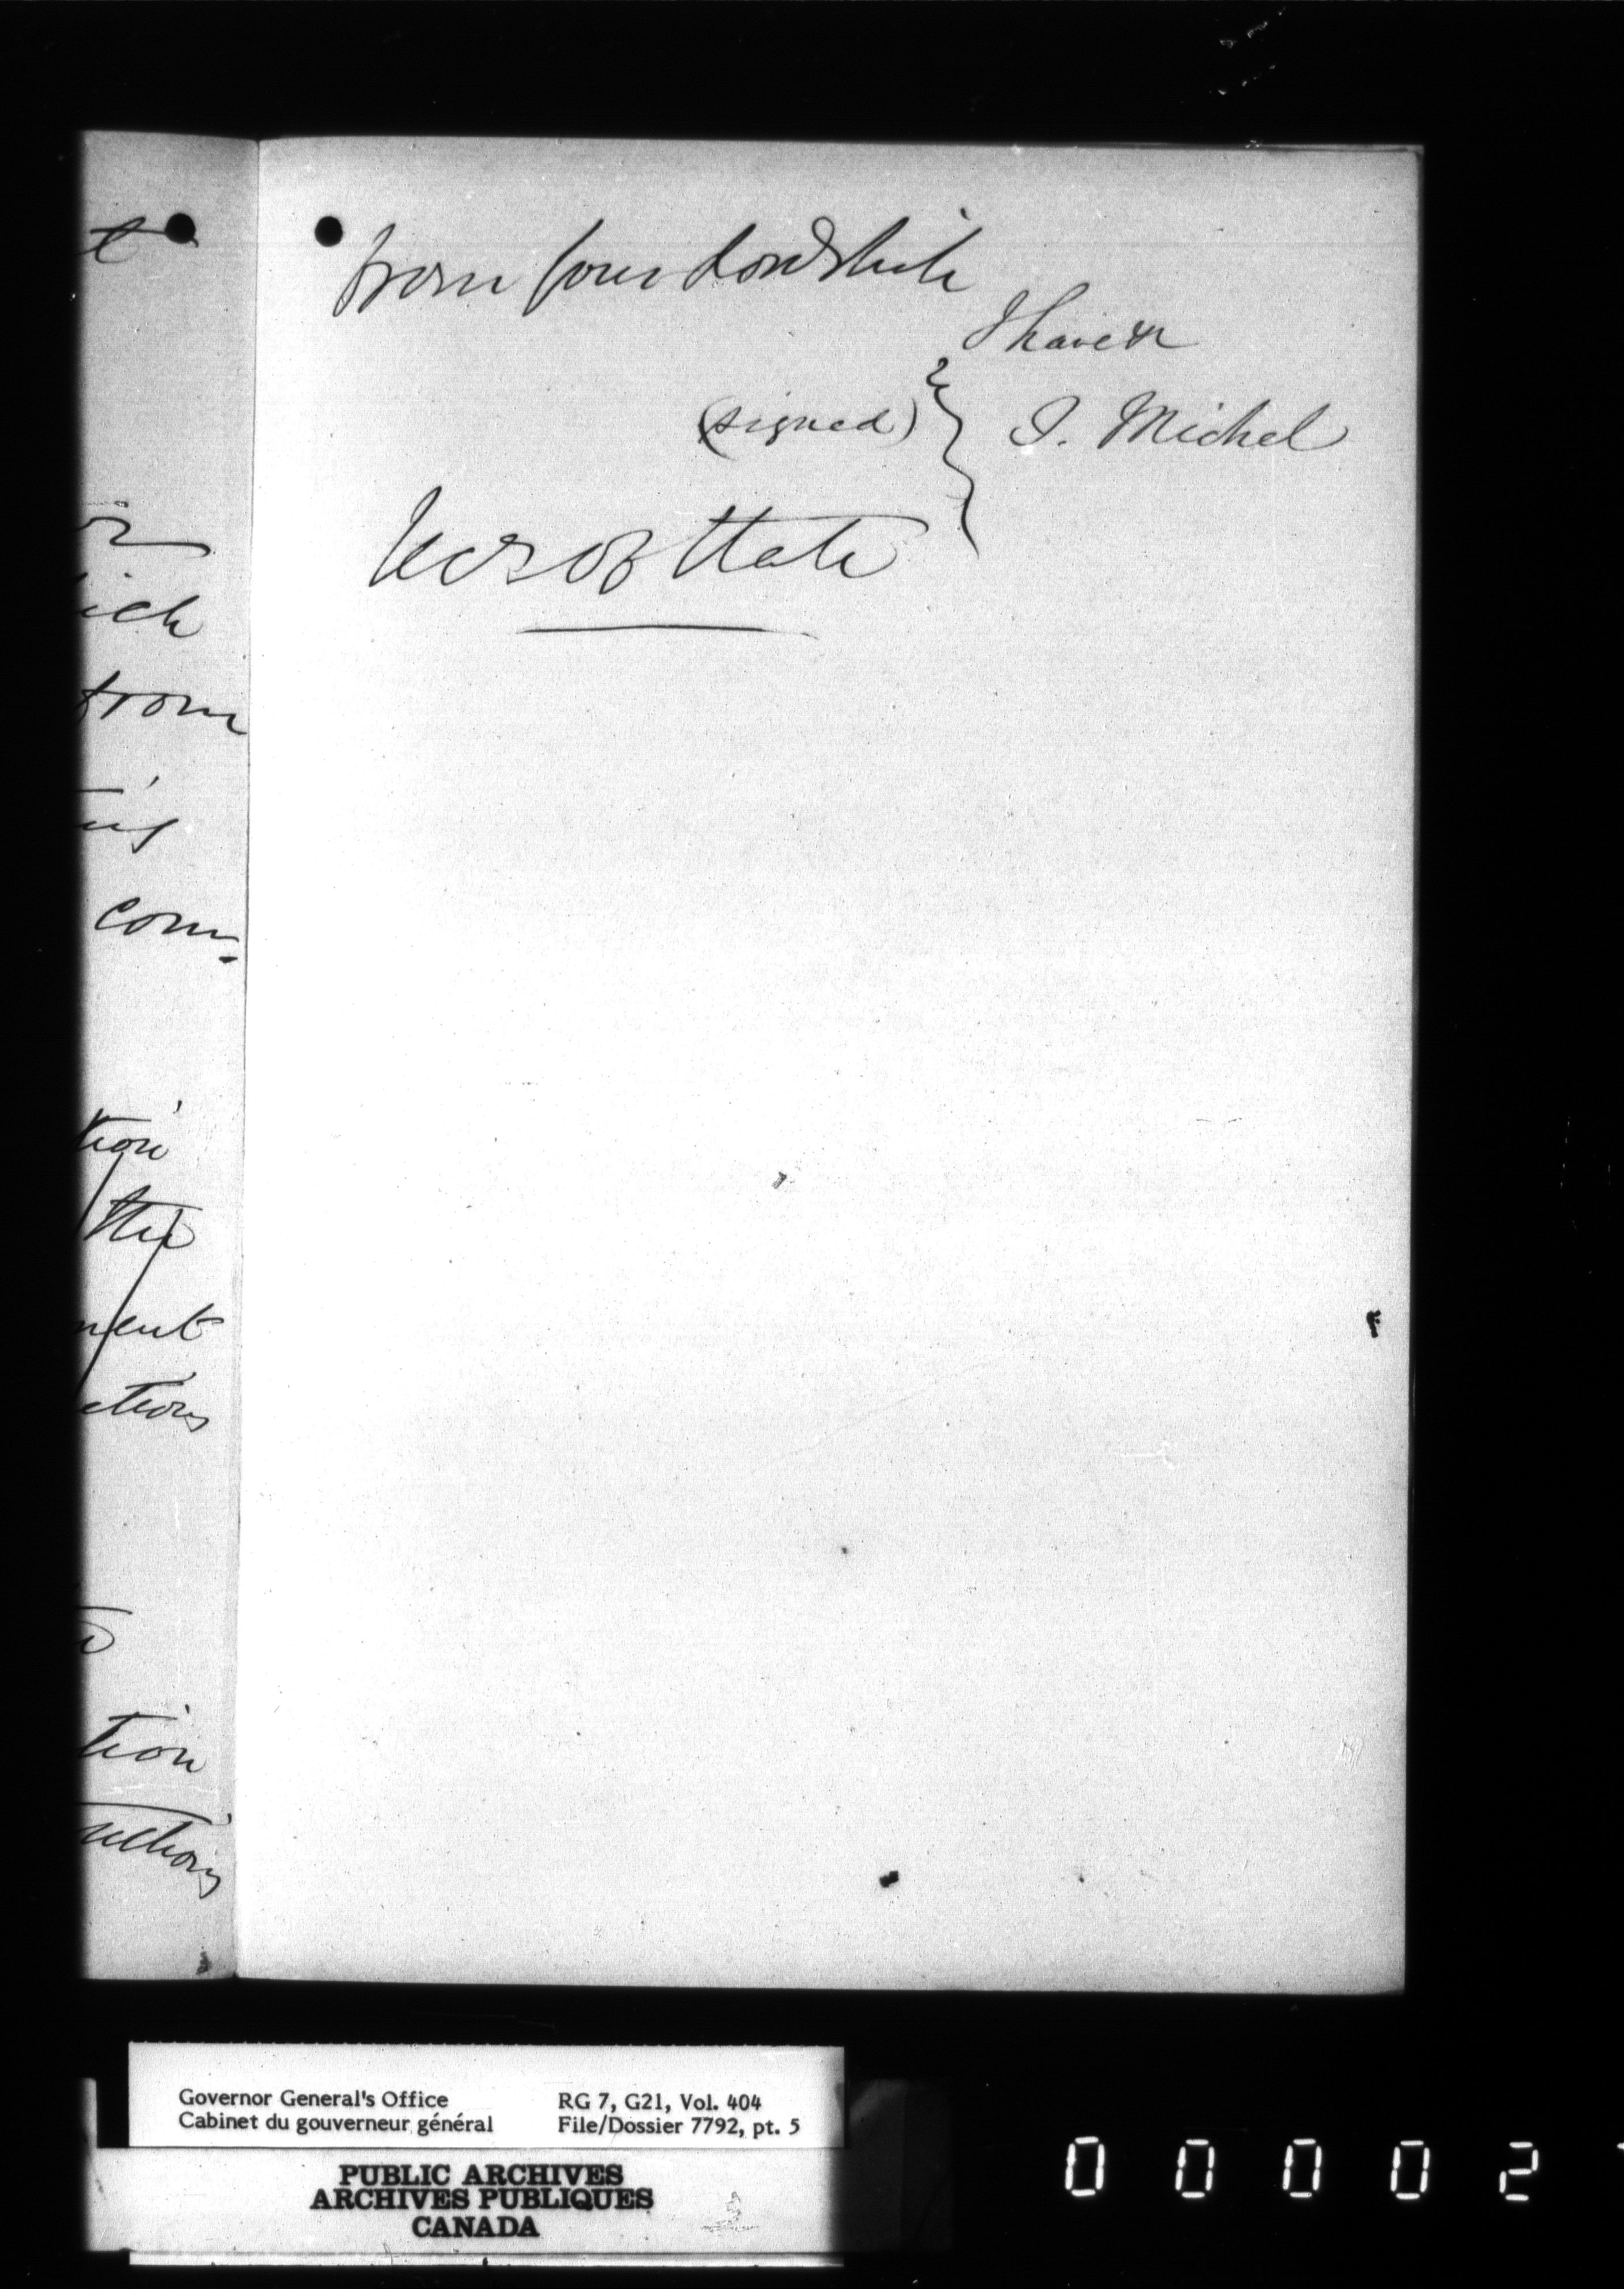 from your Lordship
I have &c
(signed) J. Michel
Secy of State
t
ich
from
com-
tion
the
ment
ctions
tion
uctions
Governor General's Office
Cabinet du gouverneur général
RG 7, G21, Vol. 404
File/Dossier 7792, pt. 5
PUBLIC ARCHIVES
ARCHIVES PUBLIQUES
CANADA
0 0 0 0 2